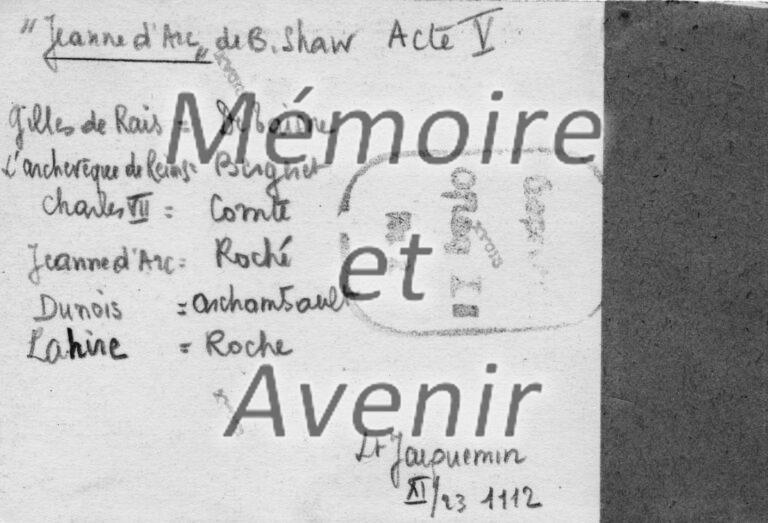 "Jeanne d'Arc" de B. Shaw Acte V
Gilles de Rais =
L'archevêque de Reims =
Charles VII = Comte
Jeanne d'Arc = Roché
Dunois = Archambault
Lahire = Roche
Mémoire
et
Avenir
Lt Jacquemin
XI/23 1112